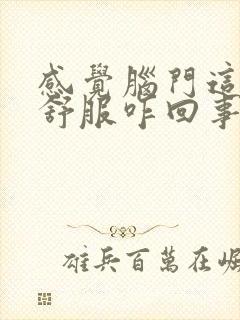 感覺腦門這
舒服咋回事
雄兵百萬在崛